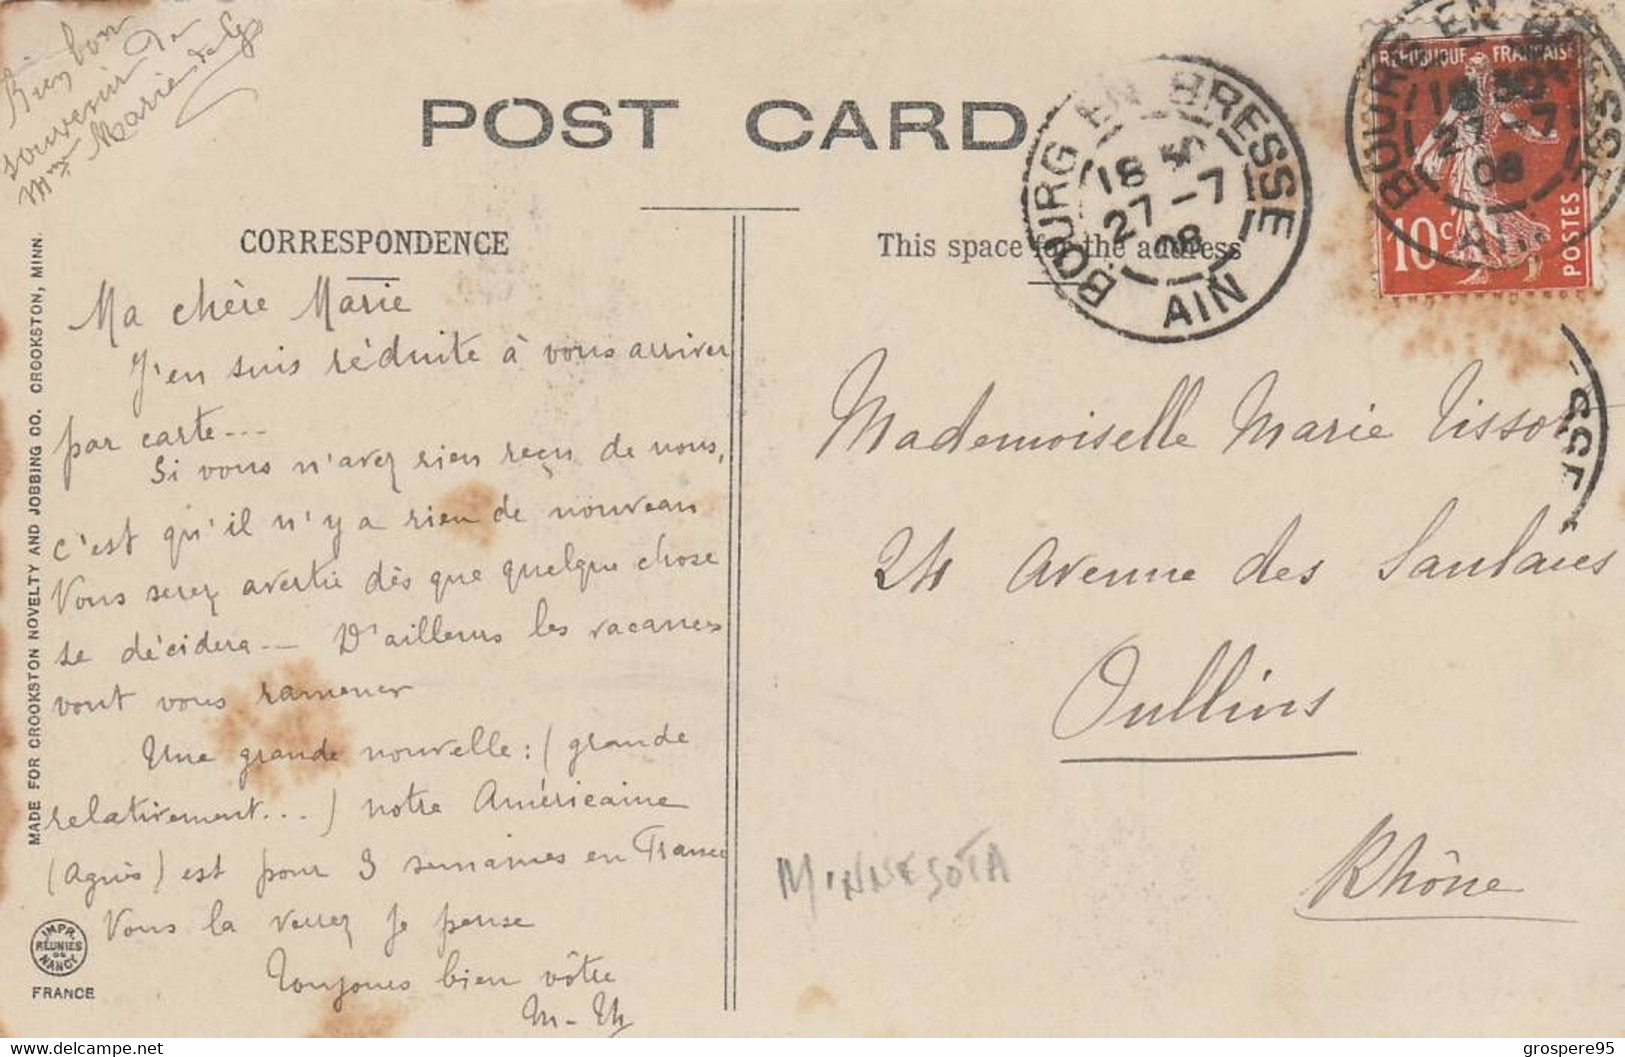 Bien bon
souvenir de
Mme Marie de G
POST CARD
BOURG EN BRESSE
18 30
27 -7
08
AIN
REPUBLIQUE FRANÇAISE
10c
POSTES
BOURG EN BRESSE
18 30
27 -7
08
AIN
CORRESPONDENCE
This space for the address
Ma chère Marie
J'en suis réduite à vous arriver
par carte...
Si vous n'avez rien reçu de nous,
c'est qu'il n'y a rien de nouveau
Vous serez avertie dès que quelque chose
se décidera... D'ailleurs les vacances
vont vous ramener
Une grande nouvelle : (grande
relativement...) notre Américaine
(Agnès) est pour 3 semaines en France
Vous la verrez je pense
Toujours bien vôtre
M-Th
Mademoiselle Marie Tissot
24 Avenue des Saulaies
Oullins
Rhône
MINNESOTA
MADE FOR CROOKSTON NOVELTY AND JOBBING CO. CROOKSTON, MINN.
IMPR.
RÉUNIES
DE
NANCY
FRANCE
delcampe.net
grospere95